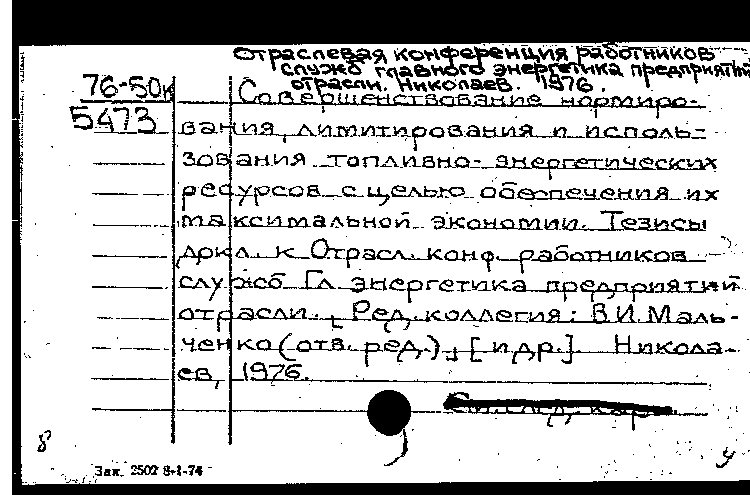 Отраслевая конференция работников
служб главного энергетика предприятий
отрасли. Николаев. 1976.
76-50к
5473
Совершенствование нормиро-
вания, лимитирования и исполь-
зования топливно-энергетических
ресурсов с целью обеспечения их
максимальной экономии. Тезисы
докл. к Отрасл. конф. работников
служб Гл. энергетика предприятий
отрасли. [Ред. коллегия: В.И. Маль-
ченко (отв. ред.)] [и др.]. Никола-
ев, 1976.
См. след. карт.
8
у
Зак. 2502 8-1-74